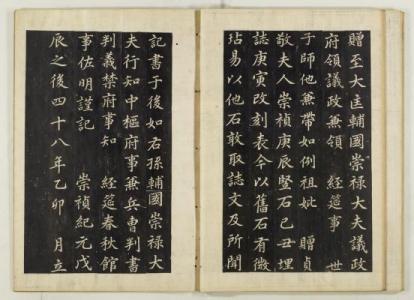 贈至大匡輔國崇祿大夫議政
府領議政兼領 經筵事 世
子師他兼帶如例祖妣 贈貞
敬夫人崇禎庚辰竪石己丑埋
誌庚寅改刻表今以舊石有微
玷易以他石敢取誌文及所聞
記書于後如右孫輔國崇祿大
夫行知中樞府事兼兵曹判書
判義禁府事知 經筵春秋館
事佐明謹記 崇禎紀元戊
辰之後四十八年乙卯 月立